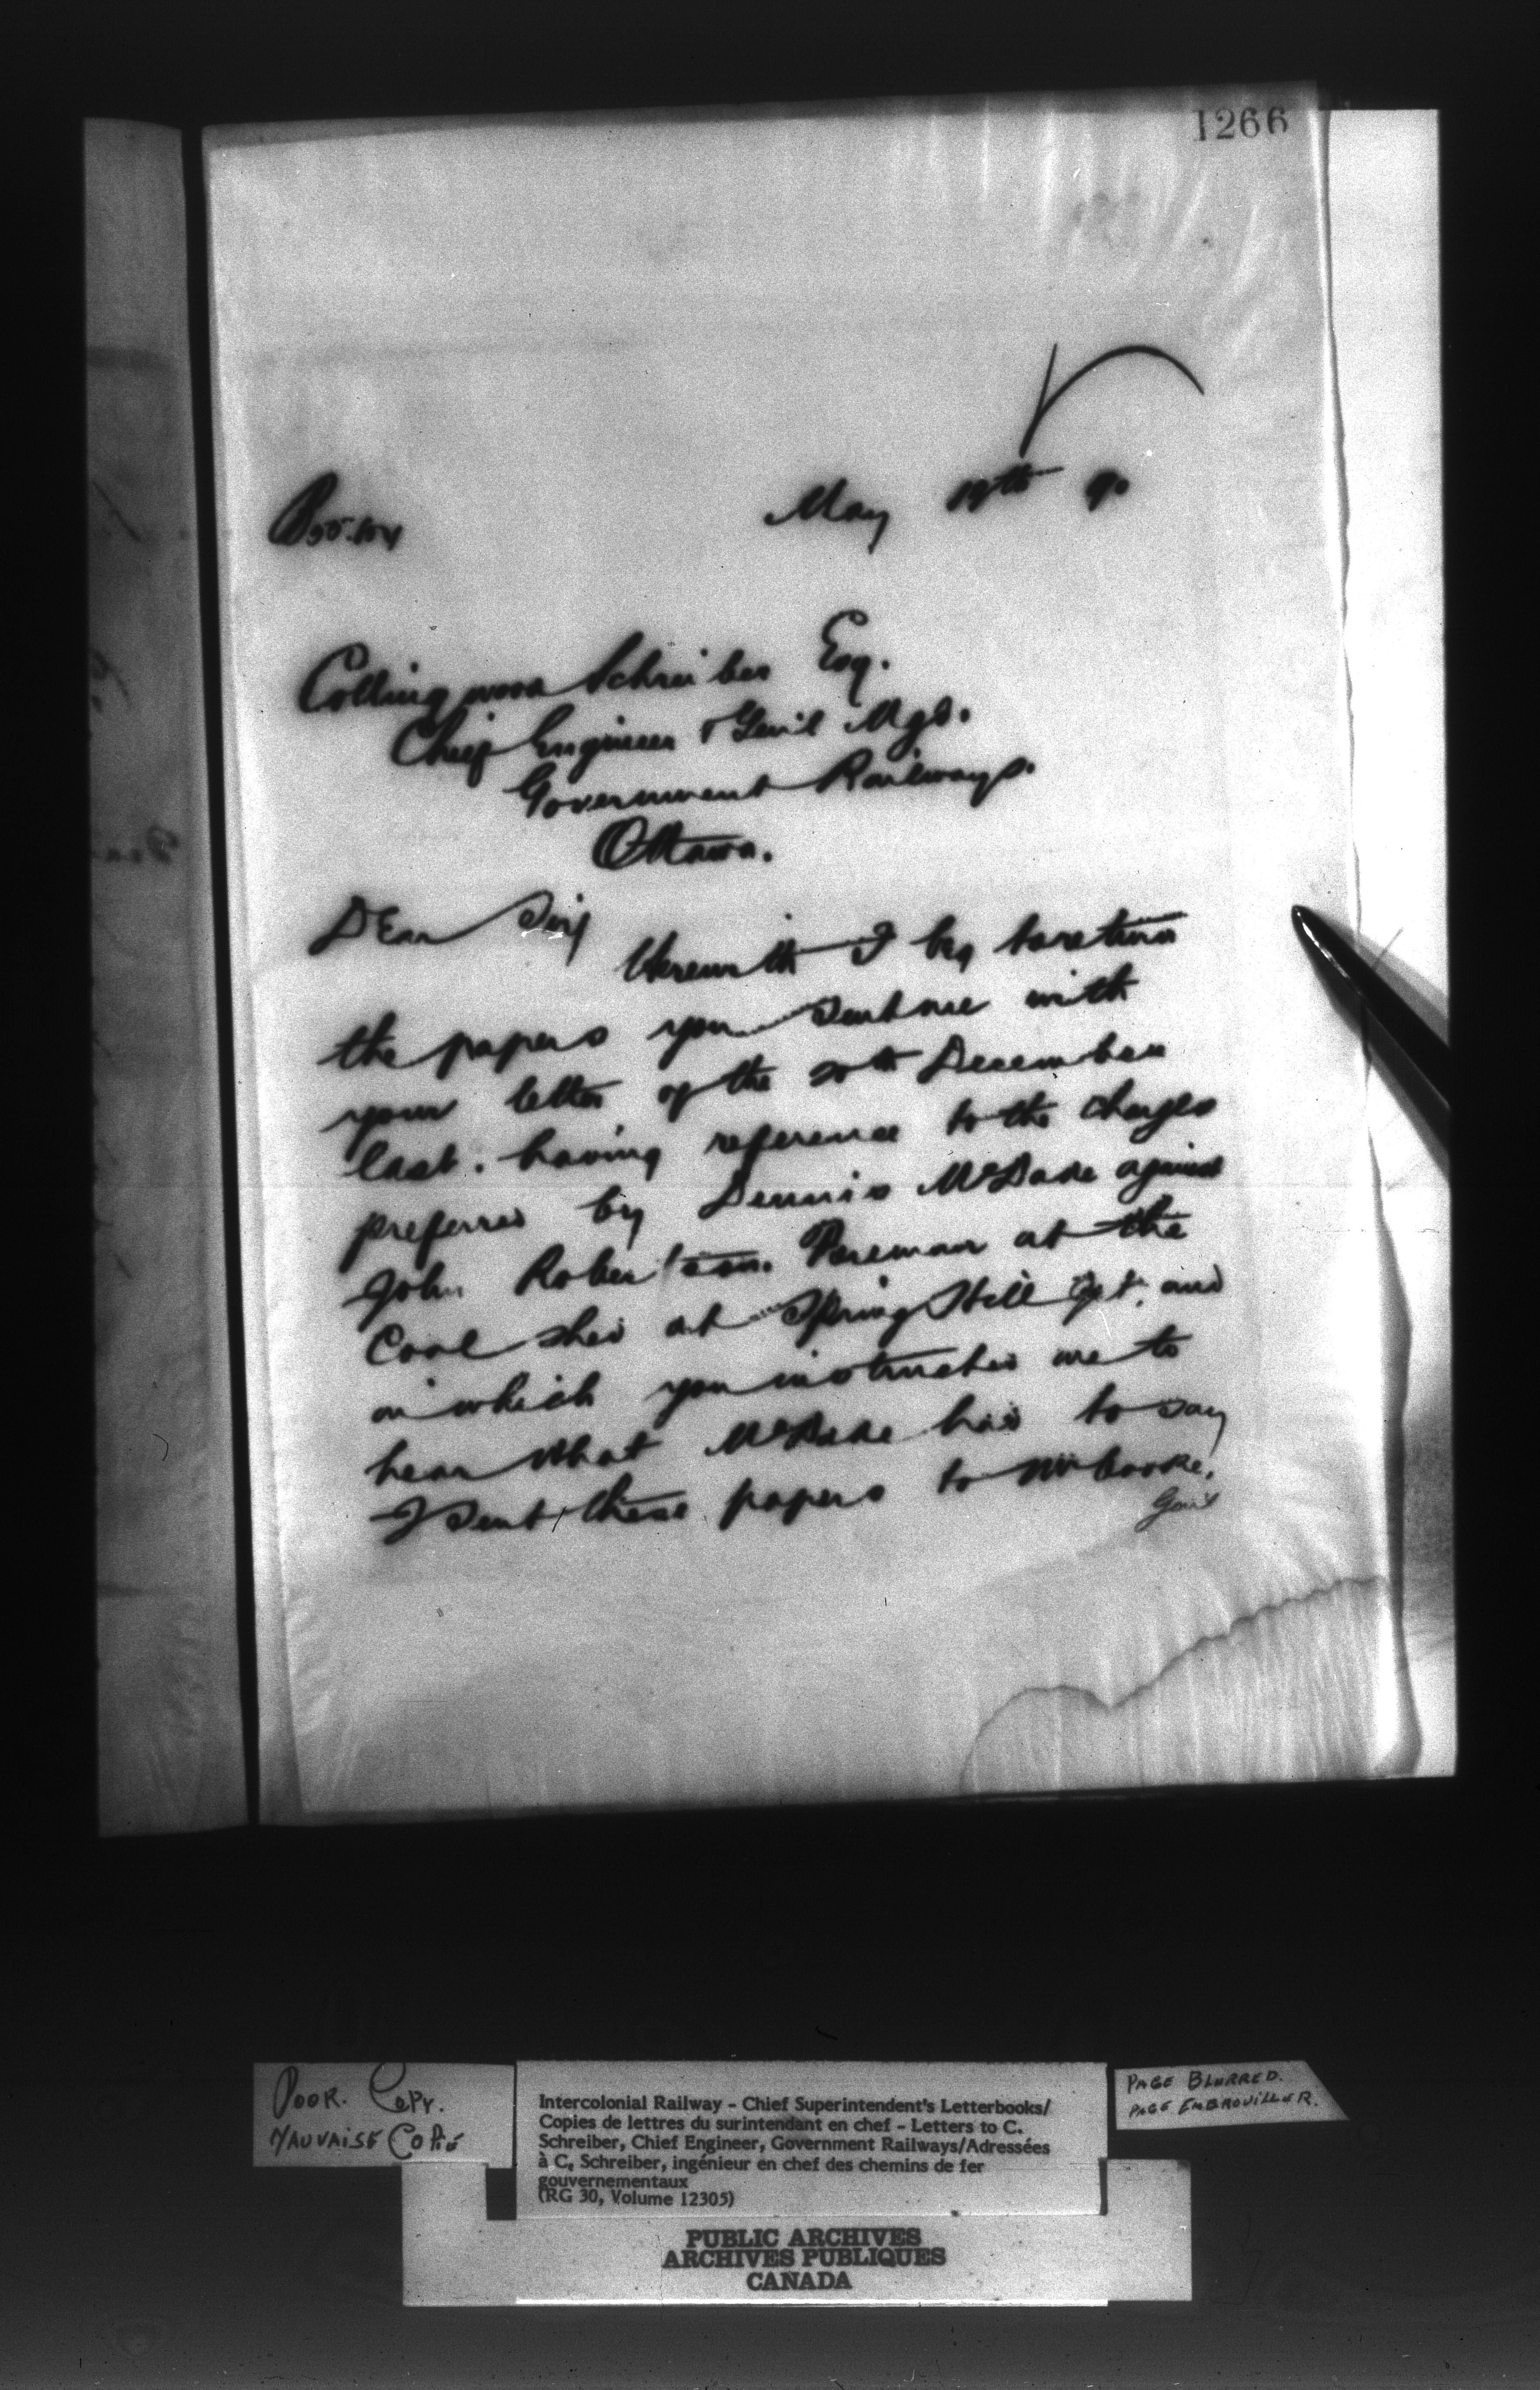 1266
May 19th 90
Collingwood Schreiber Esq.
Chief Engineer & Genl Mgr.
Government Railways.
Ottawa.
Dear Sir
Herewith I beg to return
the papers you sent me with
your letter of the 20th December
last. having reference to the charges
preferred by Dennis McDade against
John Robertson. Foreman at the
Coal shed at Spring Hill and
in which you instructed me to
hear what McDade had to say
I sent these papers to Mr Cooke,
Gen'l
POOR. COPY.
MAUVAISE COPIE
Intercolonial Railway - Chief Superintendent's Letterbooks/
Copies de lettres du surintendant en chef - Letters to C.
Schreiber, Chief Engineer, Government Railways/Adressées
à C. Schreiber, ingénieur en chef des chemins de fer
gouvernementaux
(RG 30, Volume 12305)
PAGE BLURRED.
PAGE EMBROUILLER.
PUBLIC ARCHIVES
ARCHIVES PUBLIQUES
CANADA